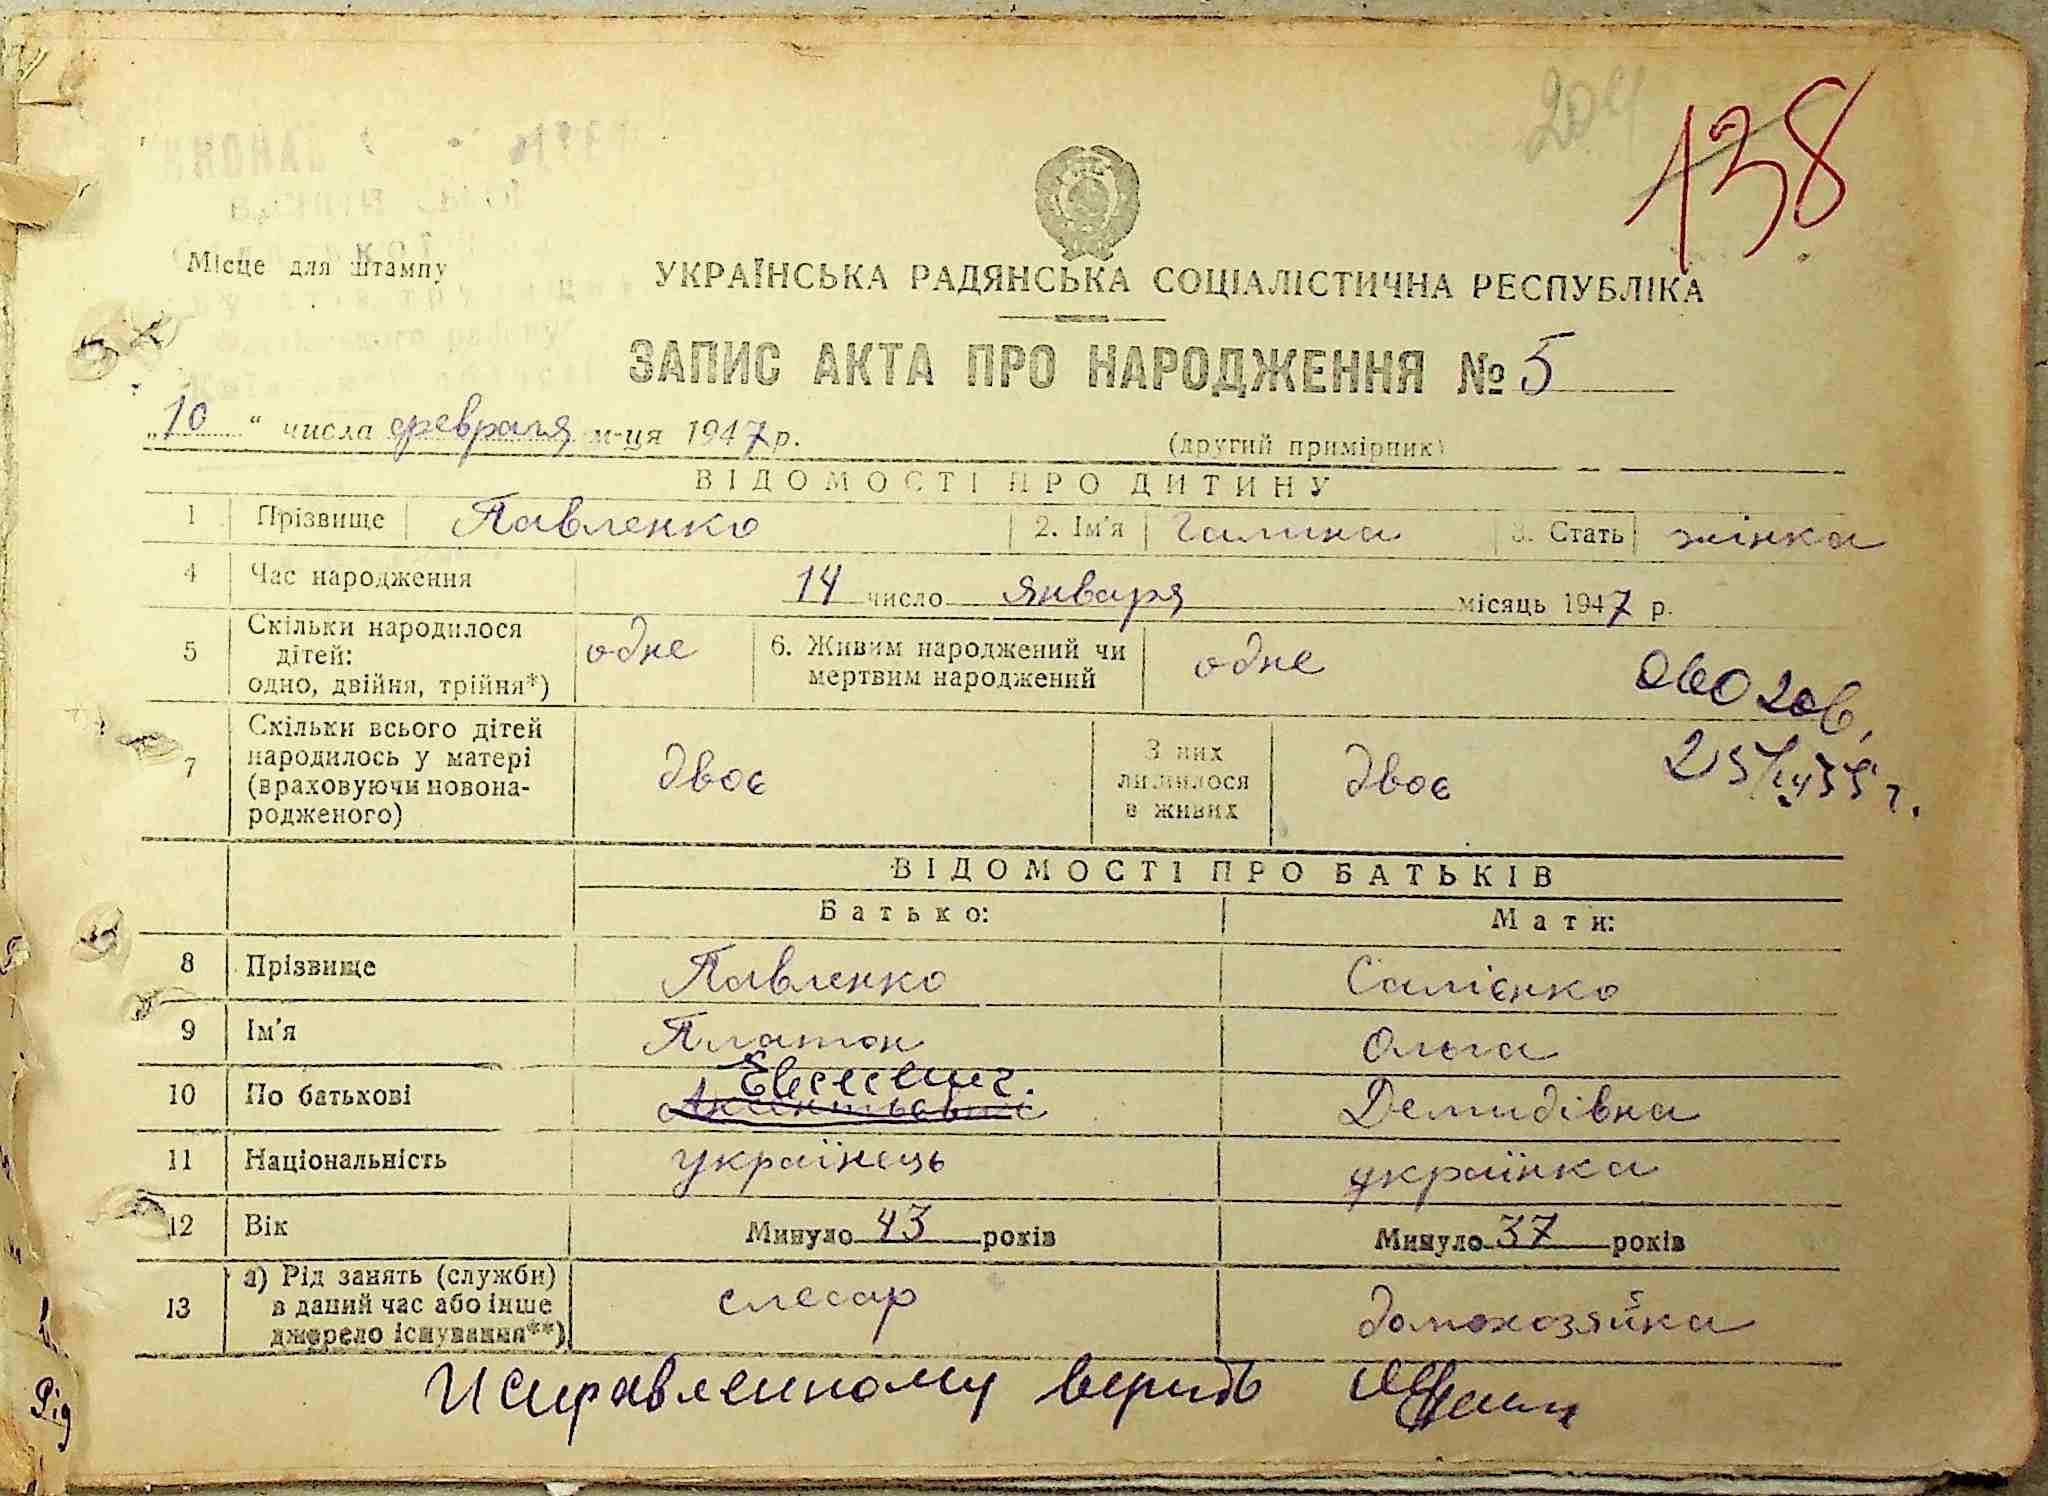 204
138
Місце для штампу
УКРАЇНСЬКА РАДЯНСЬКА СОЦІАЛІСТИЧНА РЕСПУБЛІКА
ЗАПИС АКТА ПРО НАРОДЖЕННЯ № 5
„10“ числа февраля м-ця 1947 р.
(другий примірник)
ВІДОМОСТІ ПРО ДИТИНУ
1 Прізвище Павленко 2. Ім'я Галина 3. Стать жінка
4 Час народження 14 число января місяць 1947 р.
5 Скільки народилося дітей: одно, двійня, трійня*) одне 6. Живим народжений чи мертвим народжений одне
7 Скільки всього дітей народилось у матері (враховуючи новонародженого) двоє З них лишилося в живих двоє
ВІДОМОСТІ ПРО БАТЬКІВ
Батько: Мати:
8 Прізвище Павленко Салієнко
9 Ім'я Платон Ольга
10 По батькові Демидівна
11 Національність українець українка
12 Вік Минуло 43 років Минуло 37 років
13 а) Рід занять (служби) в даний час або інше джерело існування**) слесар домохозяйка
Исправленному верить
Рід